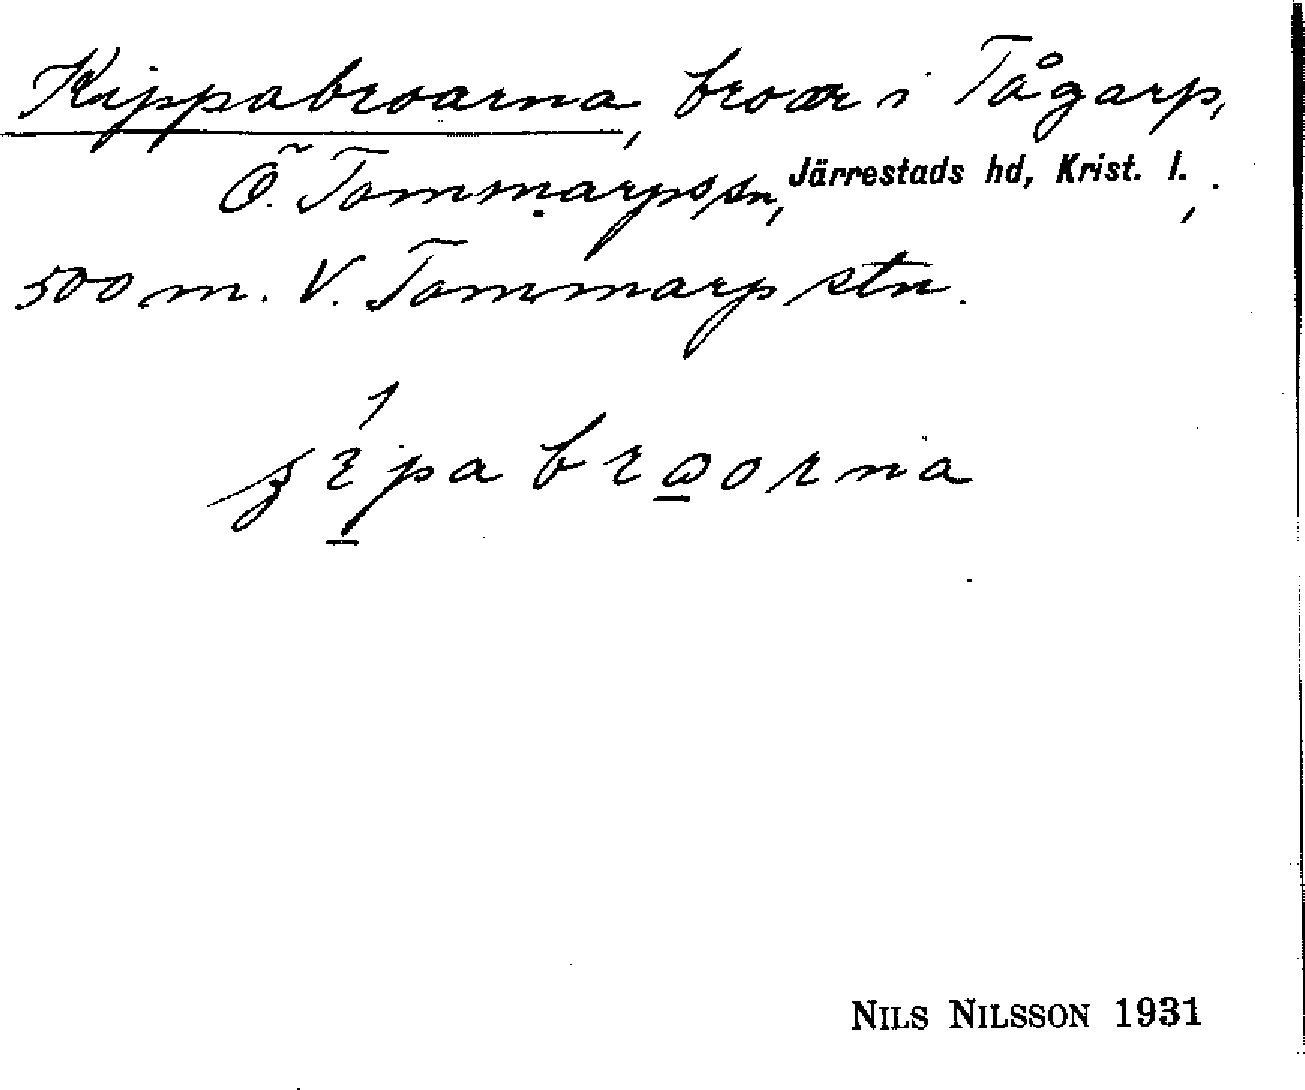 Kippabroarna, broar i Tågarp,
Ö. Tommarps sn, Järrestads hd, Krist. l.,
500 m. V. Tommarp stn.
NILS NILSSON 1931